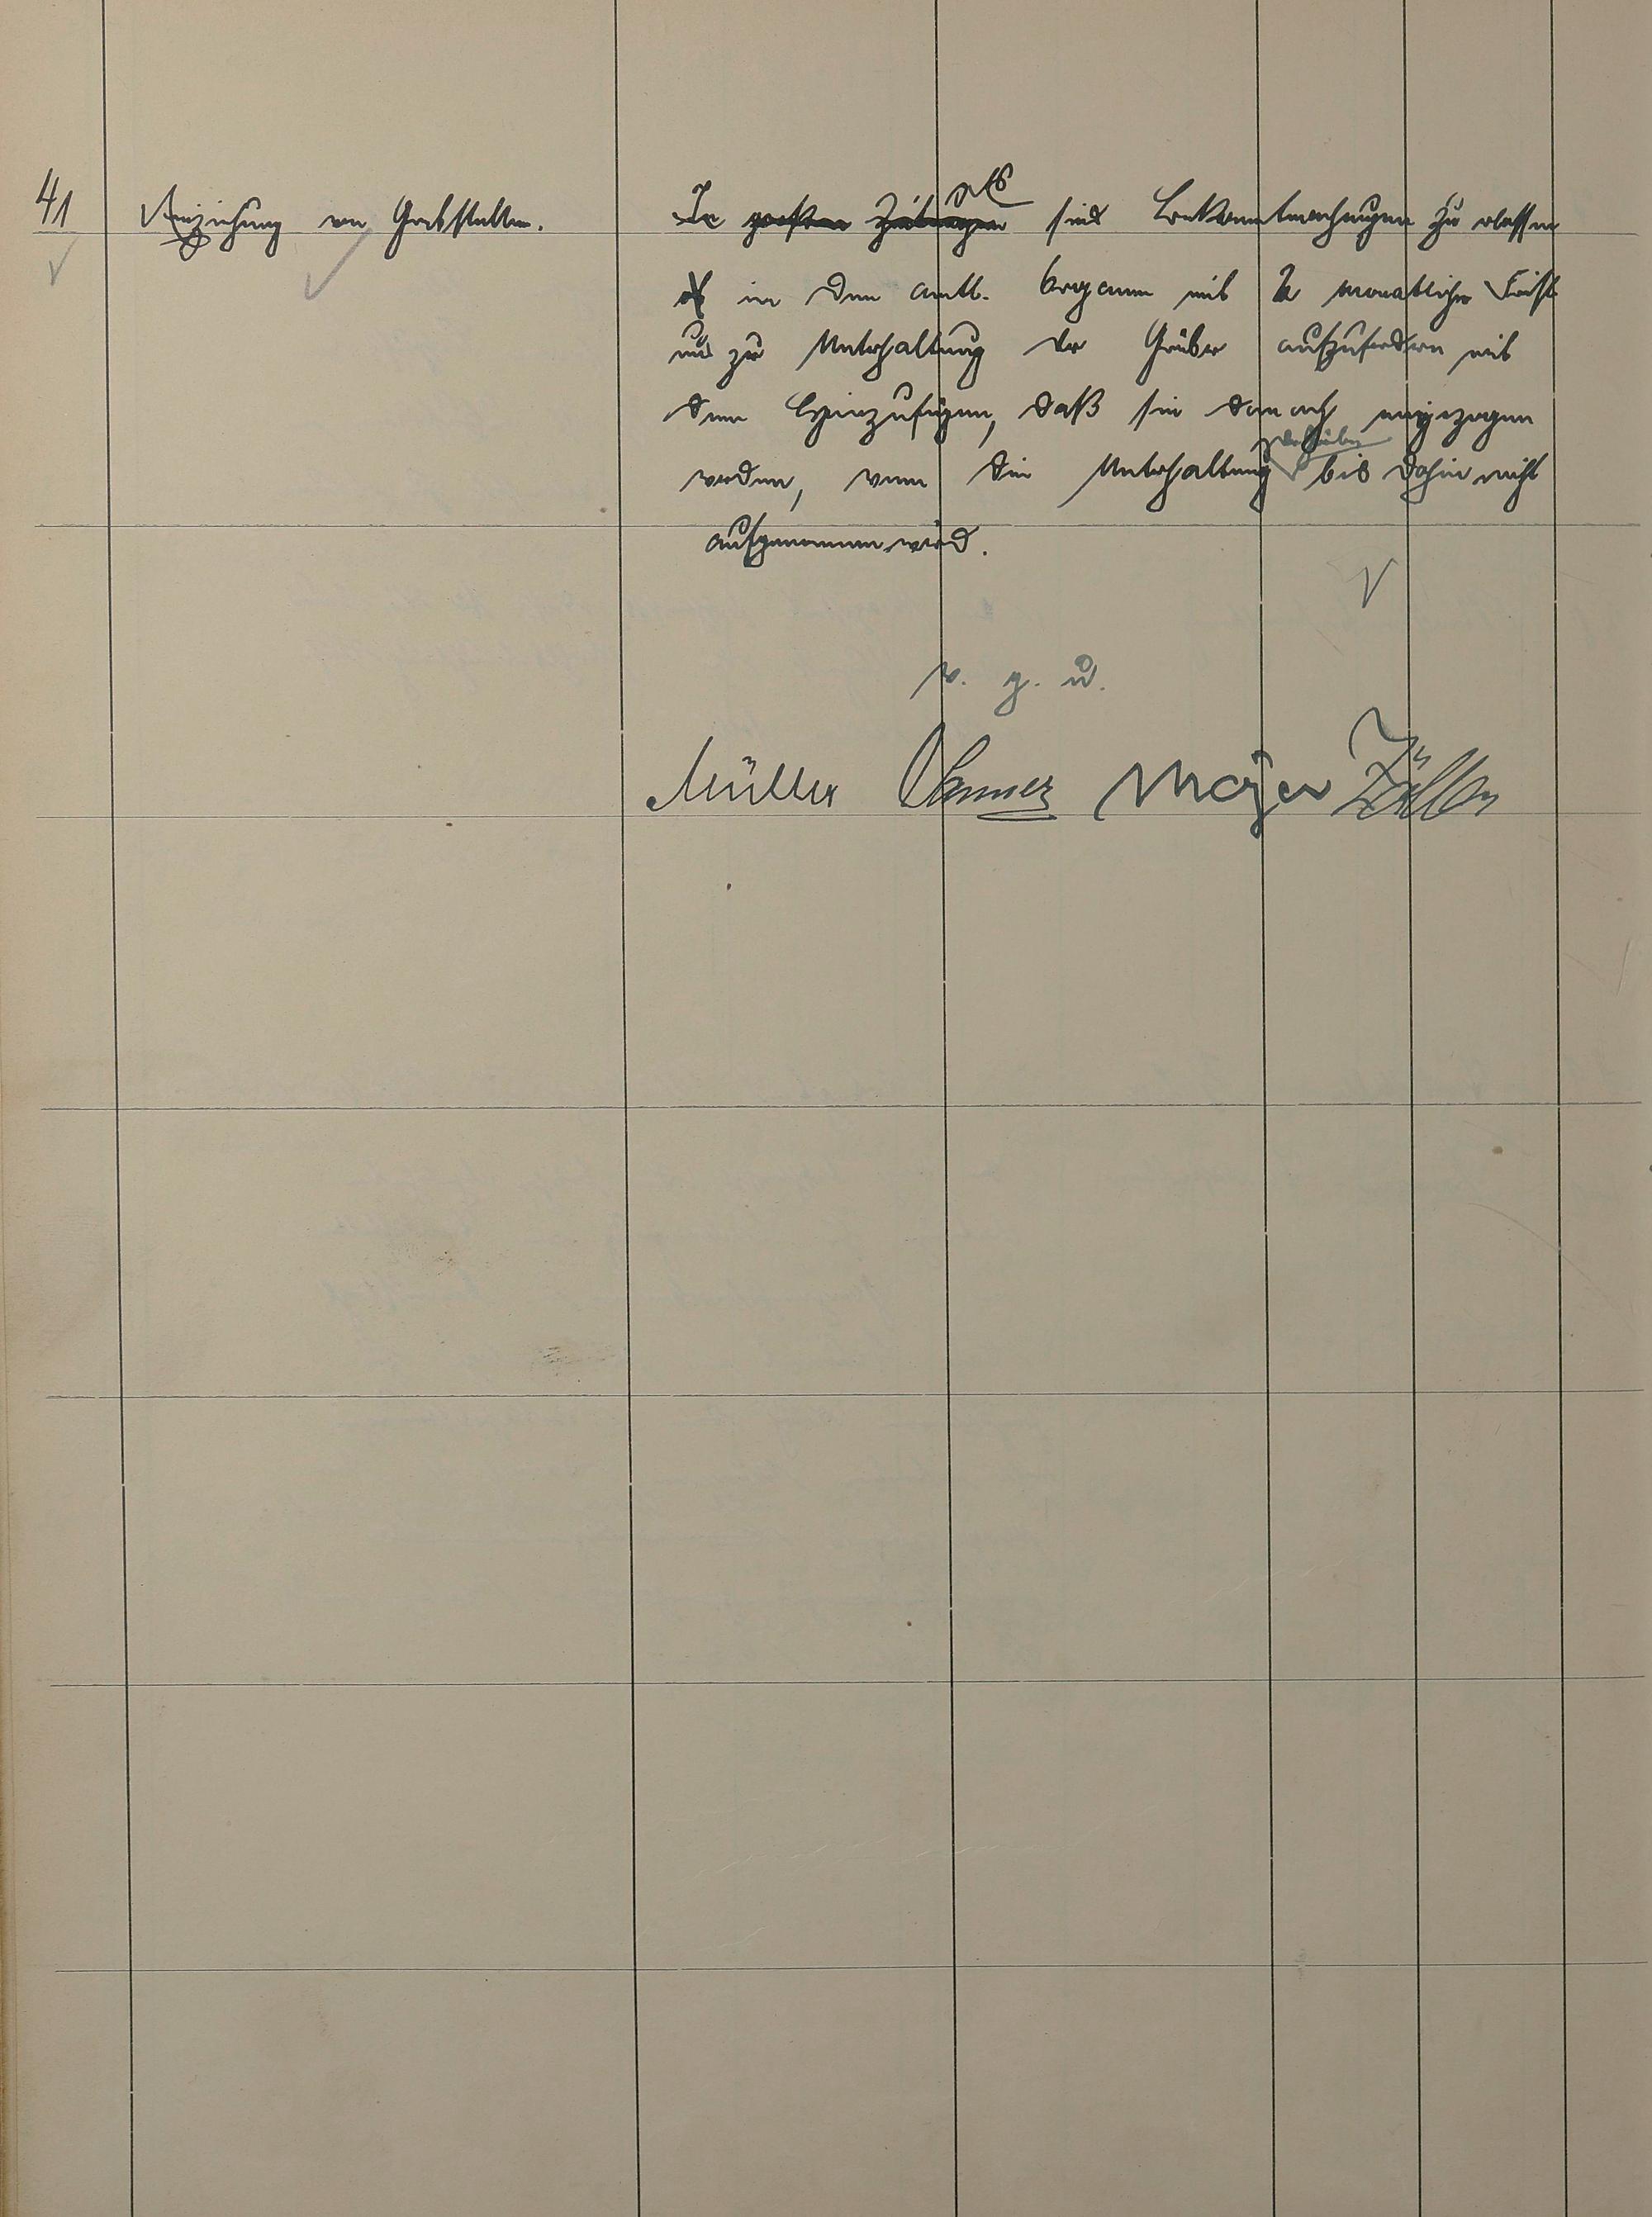 41 Einziehung von Grabstellen.
Es sind Bekanntmachungen zu erlassen
in den amtl. Organen mit 2 monatlicher Frist
um zur Unterhaltung der Gräber aufzufordern mit
dem Hinzufügen, daß sie danach eingezogen
werden, wenn die Unterhaltung derselben bis dahin nicht
aufgenommen wird.
v. g. u.
Müller Majer